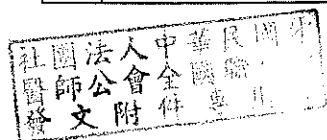 社團法人中華民國牙
醫師公會全國聯
發文附件專